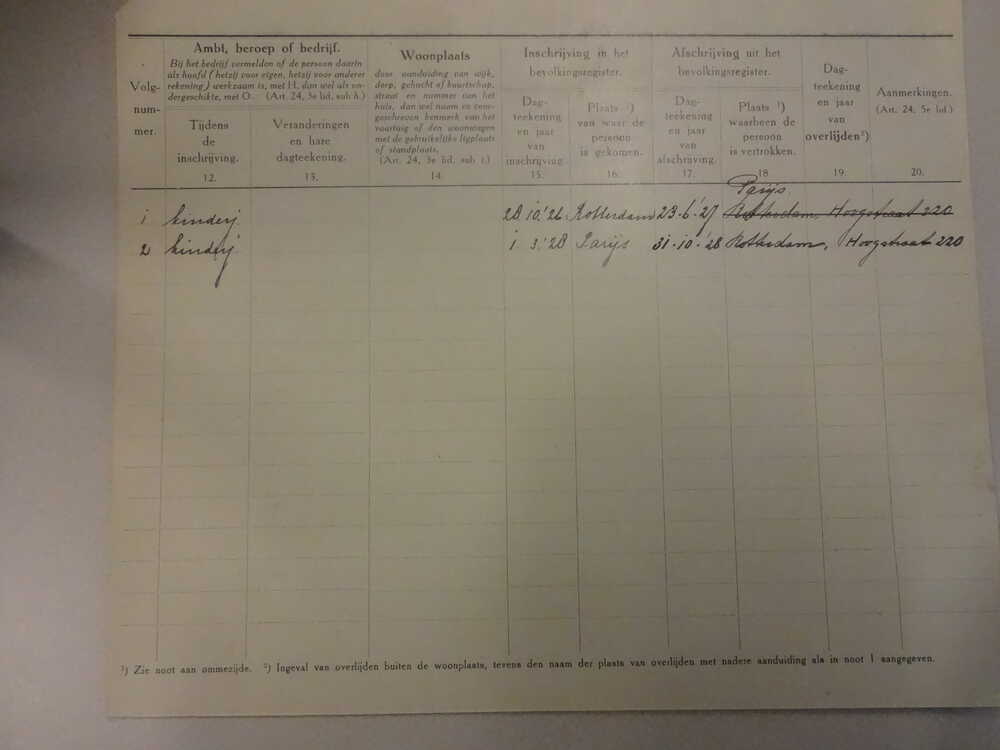 Volg-
num-
mer.
Ambt, beroep of bedrijf.
Bij het bedrijf vermelden of de persoon daarin
als hoofd (hetzij voor eigen, hetzij voor anderer
rekening) werkzaam is, met H, dan wel als on-
dergeschikte, met O. (Art. 24, 3e lid, sub h.)
Tijdens
de
inschrijving.
12.
Veranderingen
en hare
dagteekening.
13.
Woonplaats
door aanduiding van wijk,
dorp, gehucht of buurtschap,
straat en nummer van het
huis, dan wel naam en een-
geschreven kenmerk van het
vaartuig of den woonwagen
met de gebruikelijke ligplaats
of standplaats.
(Art. 24, 3e lid, sub i.)
14.
Inschrijving in het
bevolkingsregister.
Dag-
teekening
en jaar
van
inschrijving.
15.
Plaats ¹)
van waar de
persoon
is gekomen.
16.
Afschrijving uit het
bevolkingsregister.
Dag-
teekening
en jaar
van
afschrijving.
17.
Plaats ¹)
waarheen de
persoon
is vertrokken.
18.
Dag-
teekening
en jaar
van
overlijden ²).
19.
Aanmerkingen.
(Art. 24, 5e lid.)
20.
Parijs.
1 kinderj. 28 10.'26 Rotterdam 23-6-'27 Rotterdam, Hoogstraat 220
2 kinderj. 1 3.'28 Parijs 31-10-'28 Rotterdam, Hoogstraat 220
¹) Zie noot aan ommezijde. ²) Ingeval van overlijden buiten de woonplaats, tevens den naam der plaats van overlijden met nadere aanduiding als in noot 1 aangegeven.